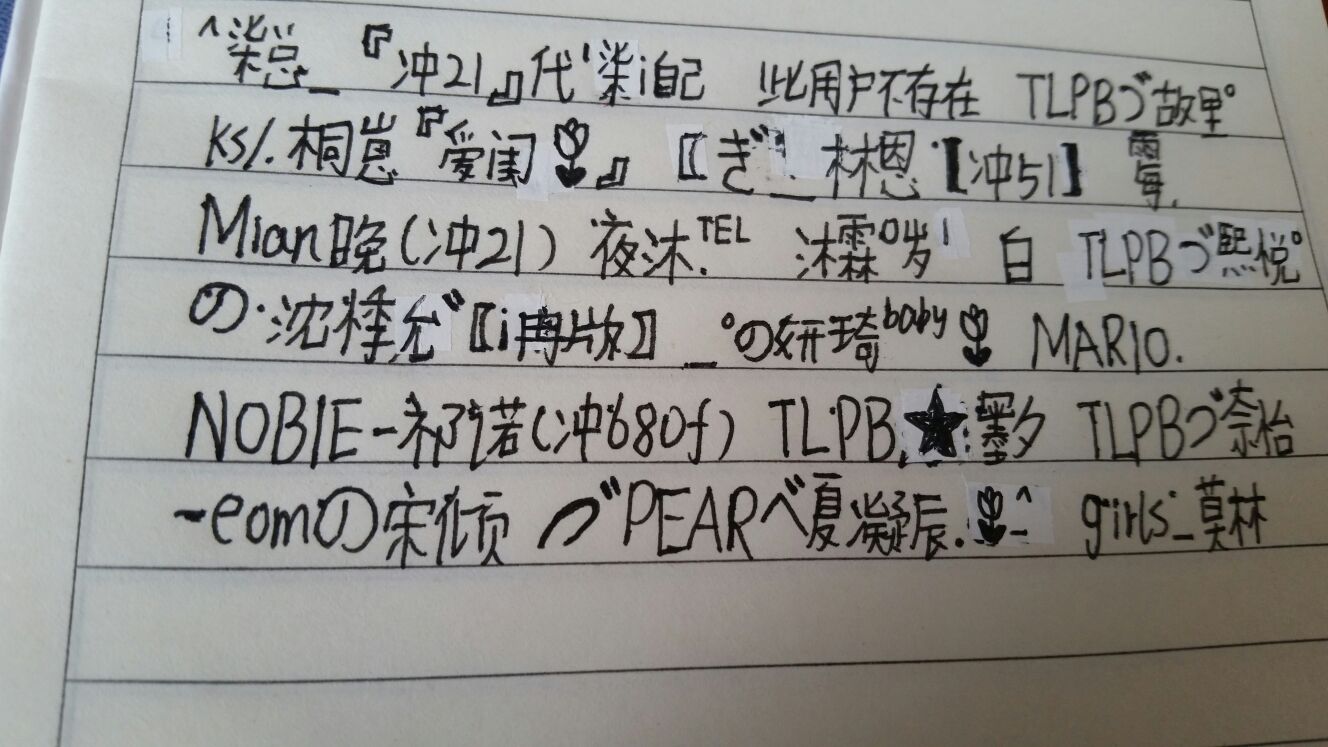 ^柒总_『冲21』代柒i自己 此用户不存在 TLPBづ故里°
KS/.桐崽『爱闺🌷』 〖ぎ_林恩·【冲51】 霉.
Mian晚(冲21) 夜沐.TEL 沐霖0岁 白 TLPBづ熙悦°
の·沈〖i再版〗 _°の妍琦baby🌷 MARIO.
NOBIE-祁诺(冲680f) TLPB.★墨夕 TLPBづ奈怡
-eomの宋倾 づPEARベ夏凝辰.🌷-^ girls_莫林